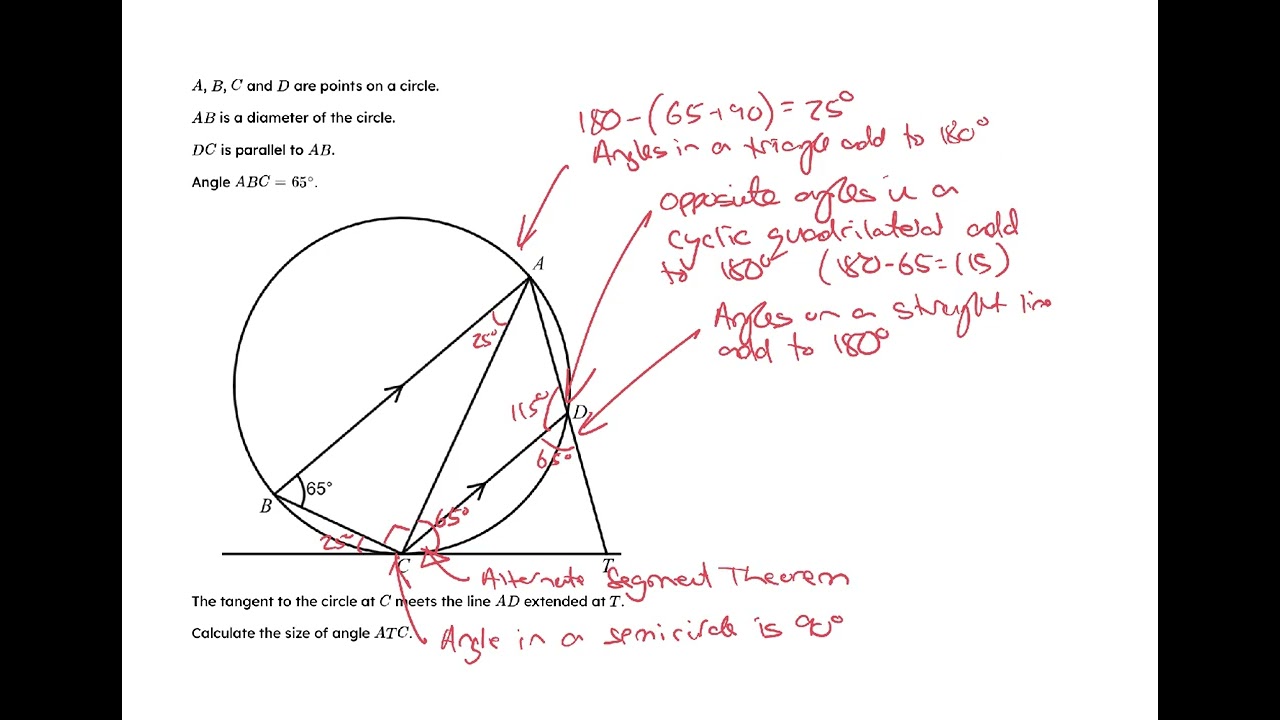 A, B, C and D are points on a circle.
AB is a diameter of the circle.
DC is parallel to AB.
Angle ABC = 65°.
180-(65+90)= 25°
Angles in a triagle add to 180°
Opposite angles in a
cyclic quadrilateral add
to 180° (180-65=115)
Angles on a straight line
add to 180°
A
25°
115°
D
65°
65°
B
65°
25°
C
T
Alternate Segment Theorem
The tangent to the circle at C meets the line AD extended at T.
Calculate the size of angle ATC.
Angle in a semicircle is 90°